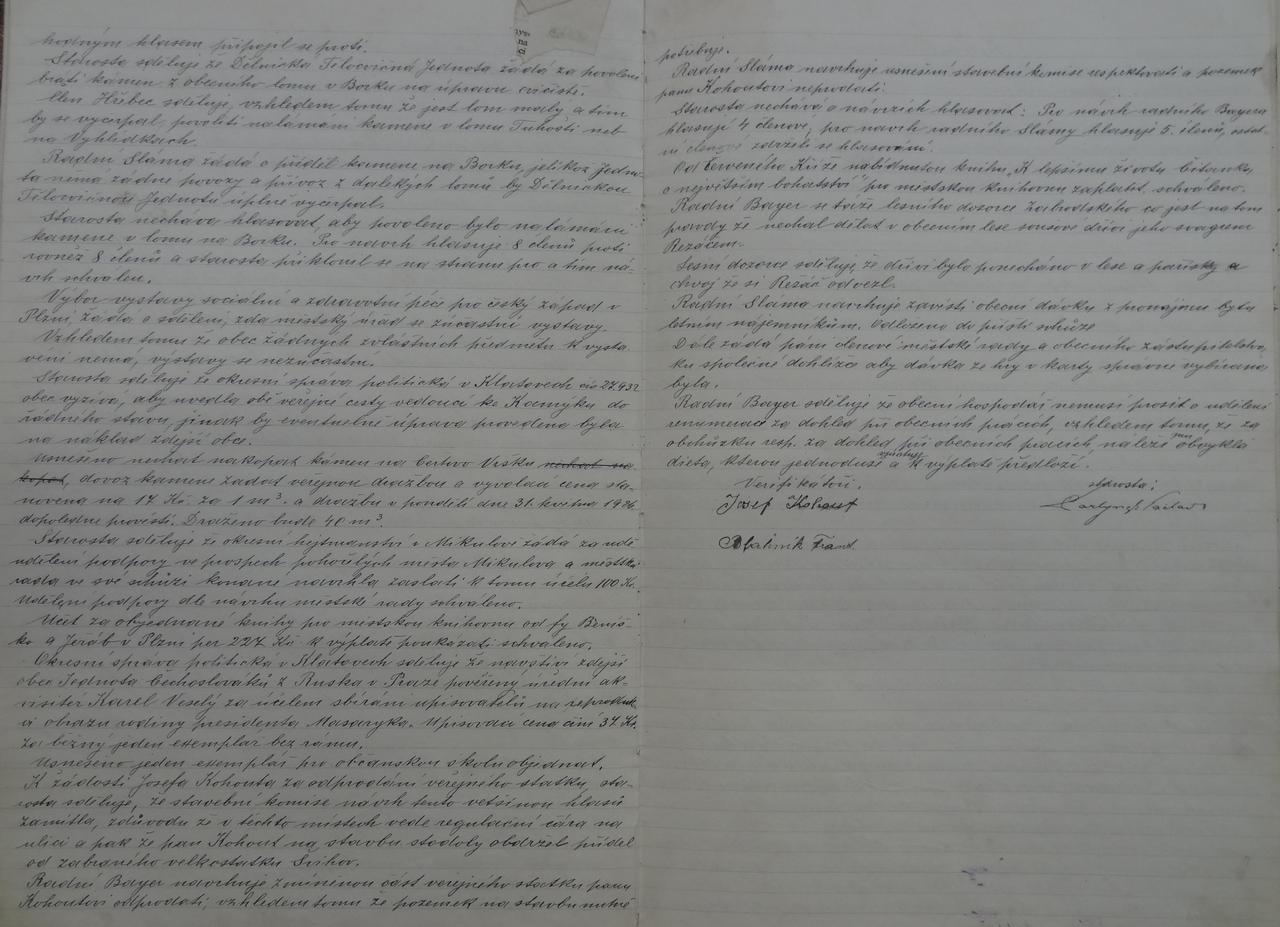 hodným hlasem připojil se proti.
Starosta sděluje že Dělnická Tělocvičná Jednota žádá za povolení
brati kámen z obecního lomu v Borku na úpravu cvičiště.
Člen Hřebec sděluje, vzhledem tomu že jest lom malý a tím
by se vyčerpal, povoliti nalámání kamene v lomu Tuhošti neb
na Vyhlídkách.
Radní Sláma žádá o příděl kamene na Borku, jelikož Jedno-
ta nemá žádné povozy a přívoz z dalekých lomů by Dělnickou
Tělocvičnou Jednotu úplně vyčerpal.
Starosta nechává hlasovat, aby povoleno bylo nalámání
kamene v lomu na Borku. Pro návrh hlasuje 8 členů proti
rovněž 8 členů a starosta přiklonil se na stranu pro a tím ná-
vrh schválen.
Výbor výstavy sociální a zdravotní péče pro český západ v
Plzni, žádá o sdělení, zda městský úřad se zúčastní výstavy.
Vzhledem tomu že obec žádných zvláštních předmětů k vysta
vení nemá, výstavy se nezúčastní.
Starosta sděluje že okresní správa politická v Klatovech čís 27.932
obec vyzívá, aby uvedla obě veřejné cesty vedoucí ke Kamýku do
řádného stavu, jinak by eventuelně úprava provedena byla
na náklad zdejší obce.
Usneseno nechat nakopat kámen na Čertovo Vršku nechat na
kopat, dovoz kamene zadat veřejnou dražbou a vyvolací cena sta-
novena na 17 Kč. za 1 m³. a dražbu v pondělí dne 31. května 1926.
dopoledne provésti. Draženo bude 40 m³.
Starosta sděluje že okresní hejtmanství v Mikulově žádá za udě
udělení podpory ve prospěch pohořelých města Mikulova a městská
rada ve své schůzi konané navrhla zaslati k tomu účelu 100 Kč.
Udělení podpory dle návrhu městské rady schváleno.
Účet za objednané knihy pro městskou knihovnu od fy Brniš-
ko a Jeřáb v Plzni per 227 Kč k výplatě poukázati schváleno.
Okresní správa politická v Klatovech sděluje že navštíví zdejší
obec Jednota Čechoslováků z Ruska v Praze pověřený úřední ak-
visitér Karel Veselý za účelem sbírání upisovatelů na reproduk
ci obrazu rodiny presidenta Masaryka. Upisovací cena činí 37 Kč.
za běžný jeden exemplář bez rámu.
Usneseno jeden exemplář pro občanskou školu objednat.
K žádosti Josefa Kohouta za odprodání veřejného statku, sta-
rosta sděluje, že stavební komise návrh tento většinou hlasů
zamítla, zdůvodu že v těchto místech vede regulační čára na
ulici a pak že pan Kohout na stavbu stodoly obdržel příděl
od zabraného velkostatku Švihov.
Radní Bayer navrhuje zmíněnou část veřejného statku panu
Kohoutovi odprodati, vzhledem tomu že pozemek na stavbu nutně
potřebuje.
Radní Sláma navrhuje usnešení stavební komise respektovati a pozemek
panu Kohoutovi neprodati.
Starosta nechává o návrzích hlasovat: Pro návrh radního Bayera
hlasují 4 členové, pro návrh radního Slámy hlasuje 5. členů, ostat
ní členové zdrželi se hlasování.
Od Červeného Kříže nabídnutou knihu „K lepšímu životu čítanka
o největším bohatství“ pro městskou knihovnu zaplatit, schváleno.
Radní Bayer se táže lesního dozorce Zahradského co jest na tom
pravdy že nechal dělat v obecním lese sousové dříví jeho švagrem
Řezáčem.
Lesní dozorce sděluje, že dříví bylo ponecháno v lese a pařezky a
chvoj že si Řezáč odvezl.
Radní Sláma navrhuje zavésti obecní dávku z pronájmu bytu
letním nájemníkům. Odloženo do příští schůze
Dále žádá pání členové městské rady a obecního zastupitelstva
ku společné dohlížce aby dávka ze hry v karty správně vybírána
byla.
Radní Bayer sděluje že obecní hospodář nemusí prosit o udělení
renumerace za dohled při obecních pracích, vzhledem tomu, že za
obchůzku resp. za dohled při obecních pracích, náleží mu obvyklá
dieta, kterou jednoduše vyúčtuje a k výplatě předloží.
Verifikátoři.
starosta:
Josef Kohout
Blahník Frant.